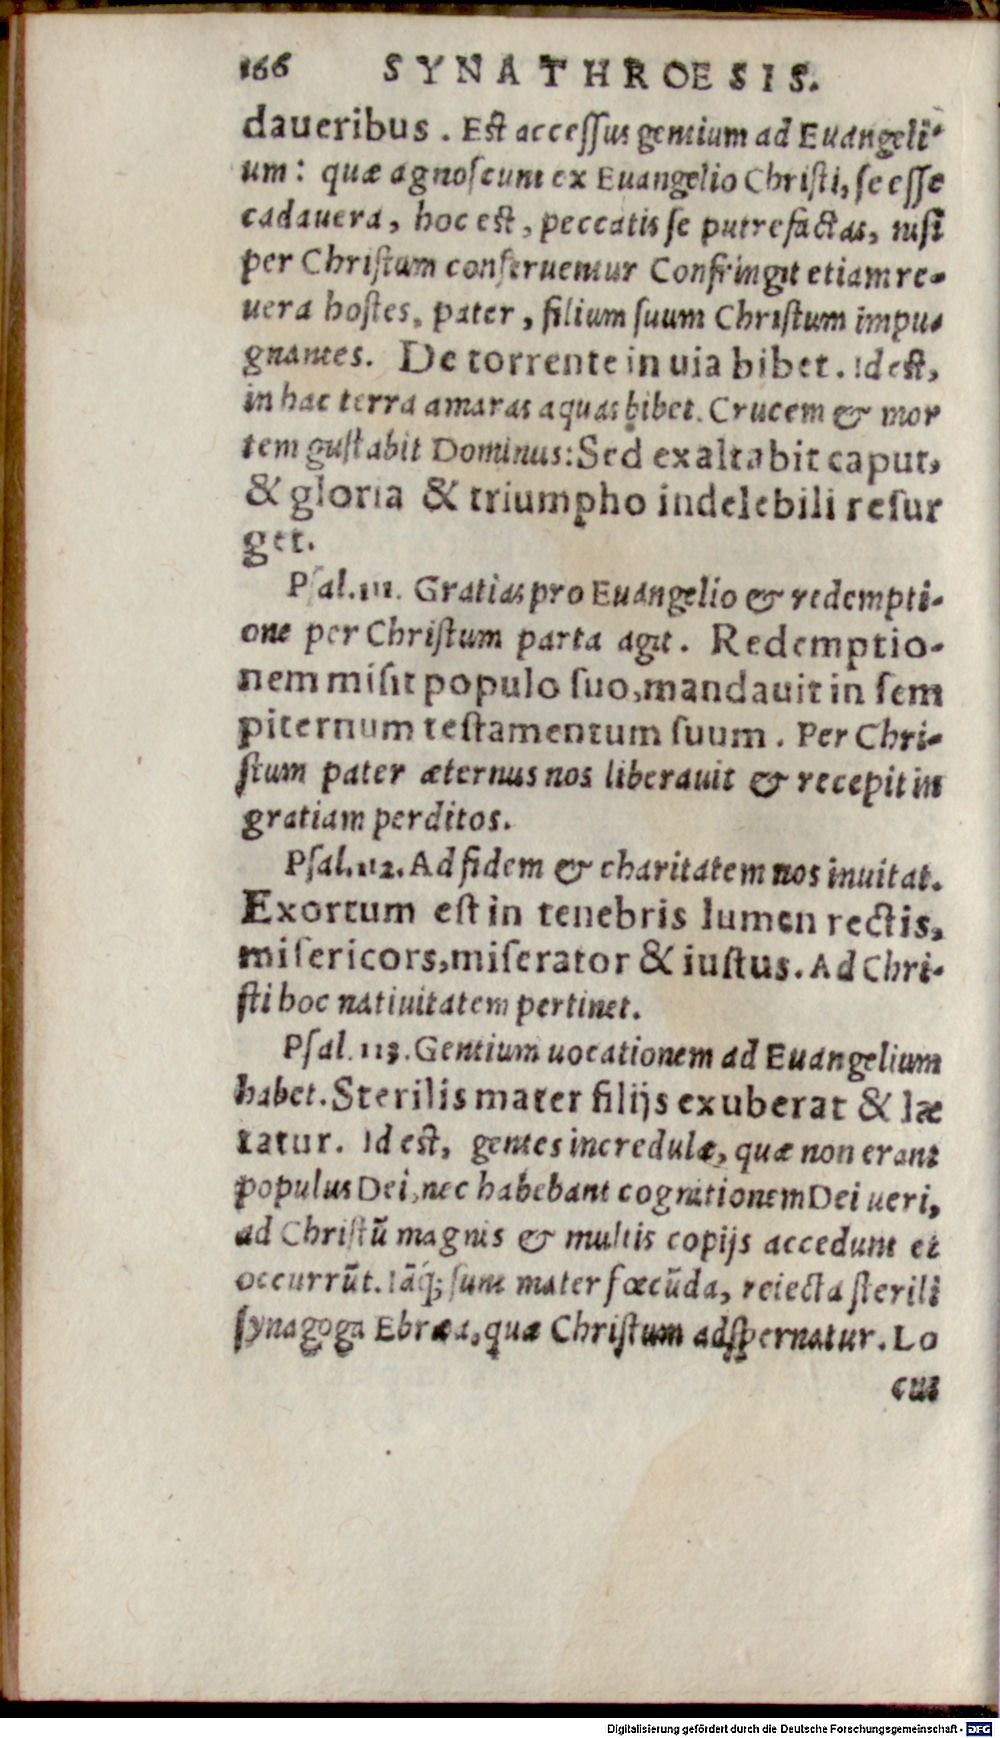 166 SYNATHROESIS.
daueribus. Est accessus gentium ad Euangeli-
um: quæ agnoscunt ex Euangelio Christi, se esse
cadauera, hoc est, peccatis se putrefactas, nisi
per Christum conseruentur Confringit etiam re-
uera hostes, pater, filium suum Christum impu-
gnantes. De torrente in uia bibet. Id est,
in hac terra amaras aquas bibet. Crucem & mor
tem gustabit Dominus: Sed exaltabit caput,
& gloria & triumpho indelebili resur
get.
Psal. 111. Gratias pro Euangelio & redempti-
one per Christum parta agit. Redemptio-
nem misit populo suo, mandauit in sem
piternum testamentum suum. Per Chri-
stum pater æternus nos liberauit & recepit in
gratiam perditos.
Psal. 112. Ad fidem & charitatem nos inuitat.
Exortum est in tenebris lumen rectis,
misericors, miserator & iustus. Ad Chri-
sti hoc natiuitatem pertinet.
Psal. 113. Gentium uocationem ad Euangelium
habet. Sterilis mater filijs exuberat & læ
tatur. Id est, gentes incredulæ, quæ non erant
populus Dei, nec habebant cognitionem Dei ueri,
ad Christũ magnis & multis copijs accedunt et
occurrũt. Iãq; sunt mater fœcũda, reiecta sterili
synagoga Ebræa, quæ Christum adspernatur. Lo
cus
Digitalisierung gefördert durch die Deutsche Forschungsgemeinschaft - DFG